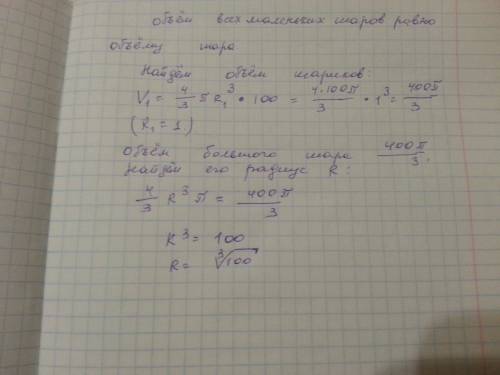 Объём всех маленьких шаров равно
объёму шара
Найдём объём шариков:
V₁ = 4/3 π R₁³ · 100 = 4·100π/3 · 1³ = 400π/3
(R₁ = 1.)
Объём большого шара 400π/3.
Найдём его радиус R:
4/3 R³ π = 400π/3
R³ = 100
R = ∛100